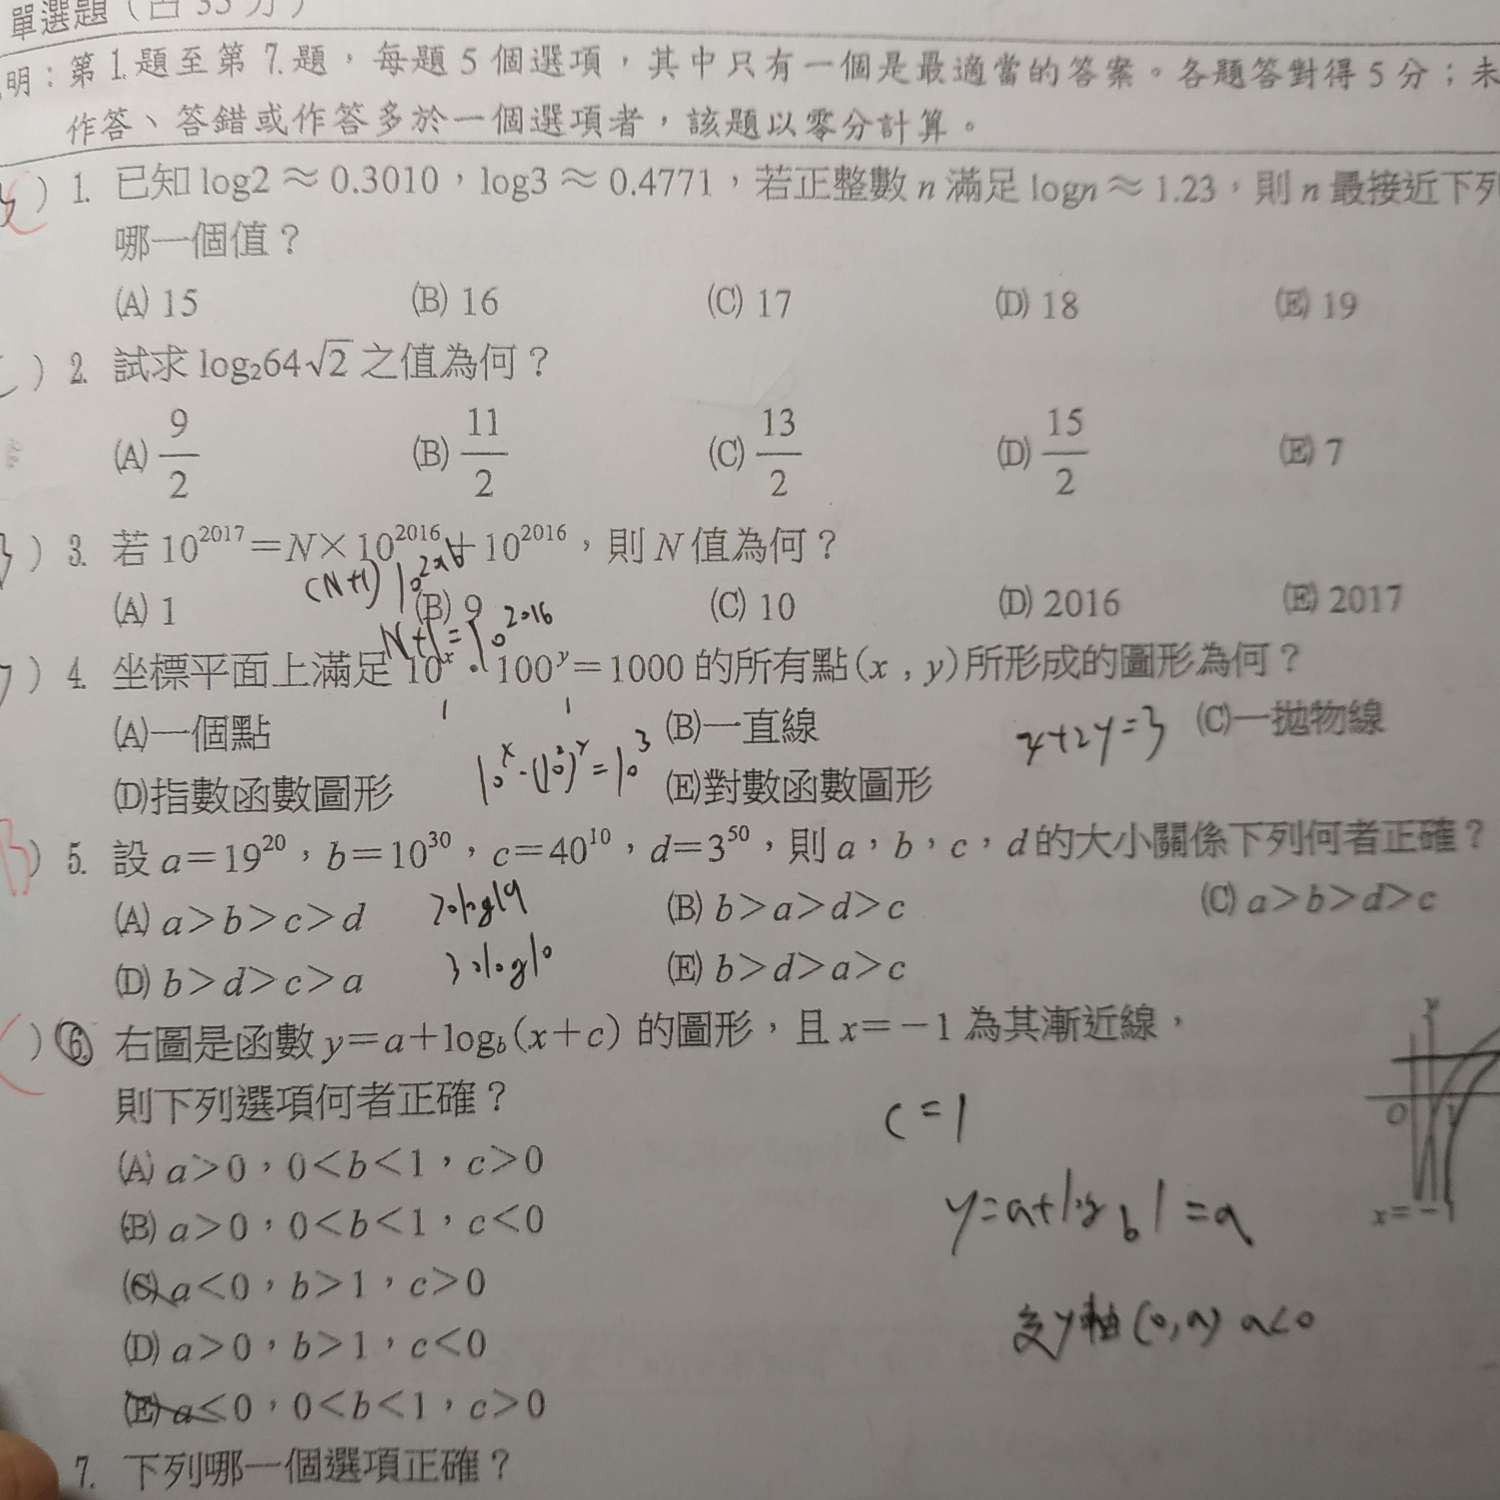 單選題（占 35 分）
明：第 1.題至第 7.題，每題 5 個選項，其中只有一個是最適當的答案。各題答對得 5 分；未
作答、答錯或作答多於一個選項者，該題以零分計算。
) 1. 已知 log2≈0.3010，log3≈0.4771，若正整數 n 滿足 logn≈1.23，則 n 最接近下列
哪一個值？
(A) 15 (B) 16 (C) 17 (D) 18 (E) 19
) 2. 試求 log₂64√2 之值為何？
(A) 9/2 (B) 11/2 (C) 13/2 (D) 15/2 (E) 7
) 3. 若 10²⁰¹⁷=N×10²⁰¹⁶+10²⁰¹⁶，則 N 值為何？
(N+1) 10²⁰¹⁶
(A) 1 (B) 9 (C) 10 (D) 2016 (E) 2017
N+1=10²⁰¹⁶
) 4. 坐標平面上滿足 10ˣ·100ʸ=1000 的所有點(x , y)所形成的圖形為何？
(A)一個點 (B)一直線 x+2y=3 (C)一拋物線
(D)指數函數圖形 10ˣ·(10²)ʸ=10³ (E)對數函數圖形
B ) 5. 設 a=19²⁰，b=10³⁰，c=40¹⁰，d=3⁵⁰，則 a，b，c，d 的大小關係下列何者正確？
(A) a>b>c>d 20log19 (B) b>a>d>c (C) a>b>d>c
(D) b>d>c>a 30log10 (E) b>d>a>c
) 6. 右圖是函數 y=a+log_b(x+c) 的圖形，且 x=−1 為其漸近線，
則下列選項何者正確？
c=1
(A) a>0，0<b<1，c>0
(B) a>0，0<b<1，c<0
y=a+log_b 1=a
(C) a<0，b>1，c>0
(D) a>0，b>1，c<0
交y軸(0,a) a<0
(E) a<0，0<b<1，c>0
y
O 1
x=−1
7. 下列哪一個選項正確？